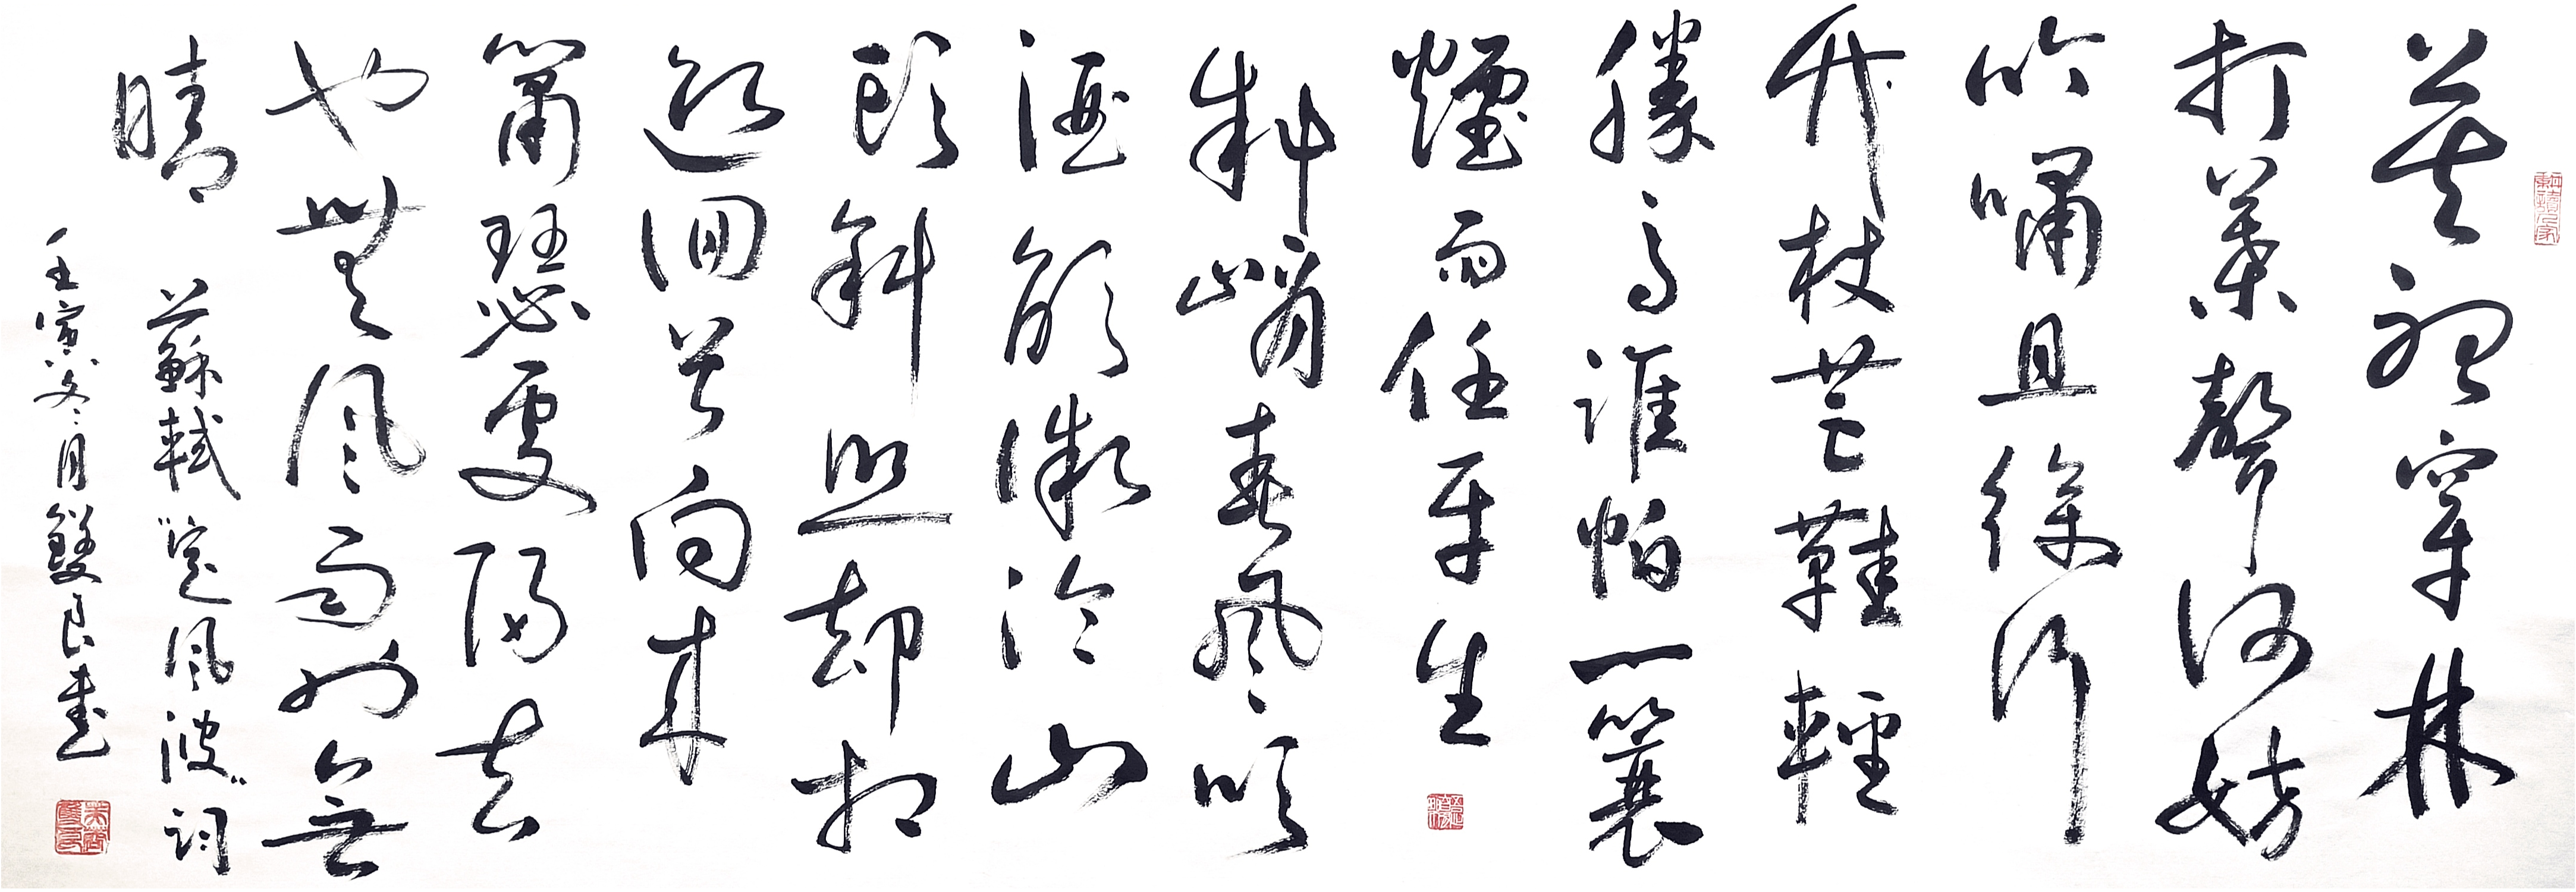 莫聽穿林
打葉聲何妨
吟嘯且徐行
竹杖芒鞋輕
勝馬誰怕一簑
煙雨任平生
料峭春風吹
酒醒微冷山
頭斜照却相
迎回首向來
簫瑟處歸去
也無風雨也無
晴
蘇軾"定風波"詞
壬寅冬月雙良書